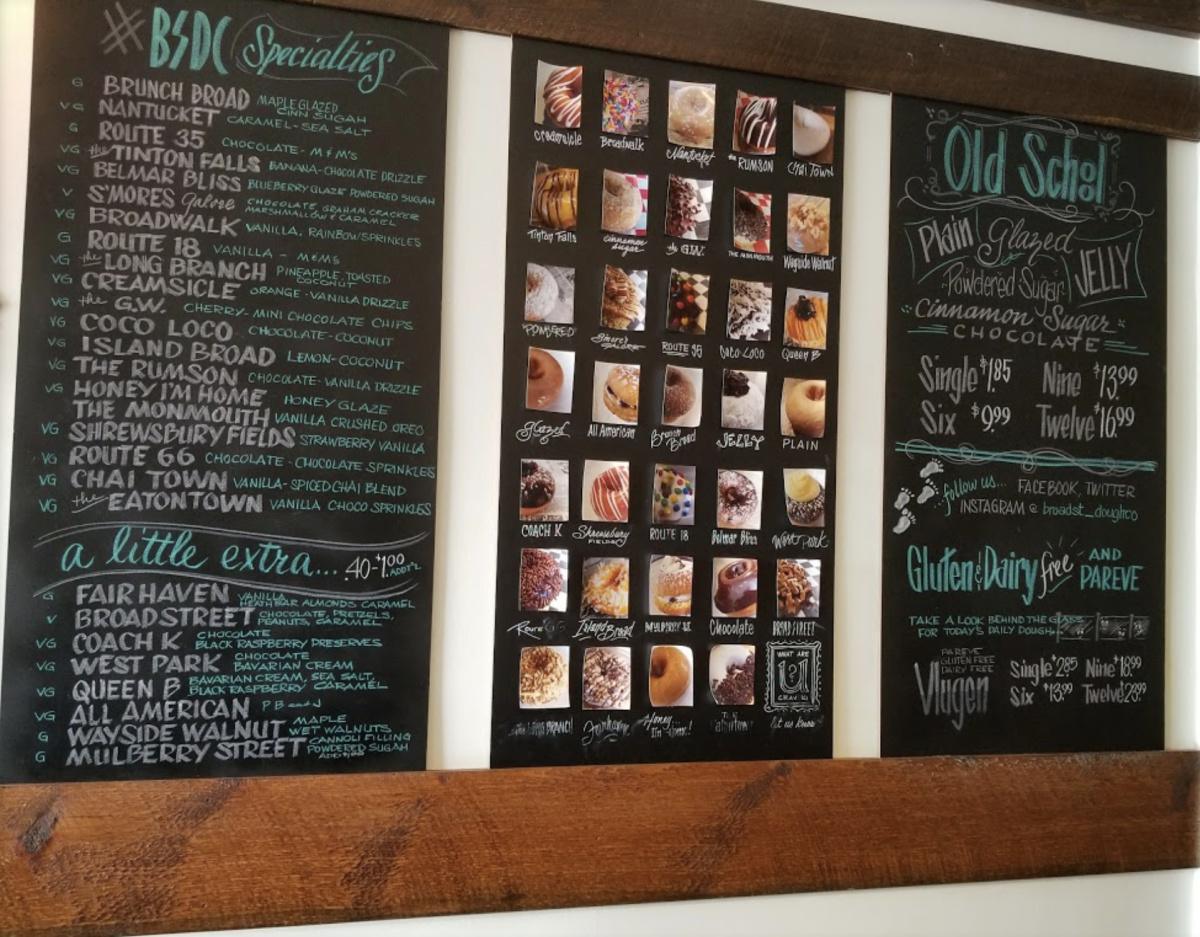 # BSDC Specialties
G BRUNCH BROAD MAPLE GLAZED CINN SUGAH
VG NANTUCKET CARAMEL-SEA SALT
G ROUTE 35 CHOCOLATE-M&M's
VG the TINTON FALLS BANANA-CHOCOLATE DRIZZLE
VG BELMAR BLISS BLUEBERRY GLAZE POWDERED SUGAH
V S'MORES Galore CHOCOLATE, GRAHAM CRACKER MARSHMALLOW & CARAMEL
VG BROADWALK VANILLA, RAINBOW SPRINKLES
G ROUTE 18 VANILLA - M&Ms
VG the LONG BRANCH PINEAPPLE, TOASTED COCONUT
VG CREAMSICLE ORANGE-VANILLA DRIZZLE
VG the G.W. CHERRY-MINI CHOCOLATE CHIPS
VG COCO LOCO CHOCOLATE-COCONUT
VG ISLAND BROAD LEMON-COCONUT
VG THE RUMSON CHOCOLATE-VANILLA DRIZZLE
VG HONEY I'M HOME HONEY GLAZE
THE MONMOUTH VANILLA CRUSHED OREO
VG SHREWSBURY FIELDS STRAWBERRY VANILLA
VG ROUTE 66 CHOCOLATE-CHOCOLATE SPRINKLES
VG CHAI TOWN VANILLA-SPICED CHAI BLEND
VG the EATONTOWN VANILLA CHOCO SPRINKLES
a little extra... .40-$1.00 ADDT'L
G FAIR HAVEN VANILLA HEATHBAR ALMONDS CARAMEL
V BROAD STREET CHOCOLATE, PRETZELS, PEANUTS, CARAMEL
VG COACH K CHOCOLATE BLACK RASPBERRY PRESERVES
VG WEST PARK CHOCOLATE BAVARIAN CREAM
VG QUEEN B BAVARIAN CREAM, SEA SALT, BLACK RASPBERRY CARAMEL
VG ALL AMERICAN PB and J
G WAYSIDE WALNUT MAPLE WET WALNUTS
G MULBERRY STREET CANNOLI FILLING POWDERED SUGAH
Creamsicle Broadwalk Nantucket the RUMSON Chai Town
Tinton Falls Cinnamon Sugar the G.W. THE MONMOUTH Wayside Walnut
POWDERED S'mores GALORE ROUTE 35 COCO-LOCO Queen B
glazed All American Brunch Broad JELLY PLAIN
COACH K Shrewsbury FIELDS ROUTE 18 Belmar Bliss West Park
Route Island Broad MULBERRY ST. Chocolate BROAD STREET
WHAT ARE U ? CRAV'N
LONG BRANCH Fairhaven Honey I'm Home! let us know
Old School
Plain Glazed JELLY
Powdered Sugar
Cinnamon Sugar
CHOCOLATE
Single $1.85 Nine $13.99
Six $9.99 Twelve $16.99
follow us... FACEBOOK, TWITTER
INSTAGRAM @ broadst_doughco
Gluten & Dairy free AND PAREVE
TAKE A LOOK BEHIND THE GLASS
FOR TODAY'S DAILY DOUGH
PAREVE
GLUTEN FREE
DAIRY FREE
Vlugen
Single $2.85 Nine $18.99
Six $13.99 Twelve 23.99